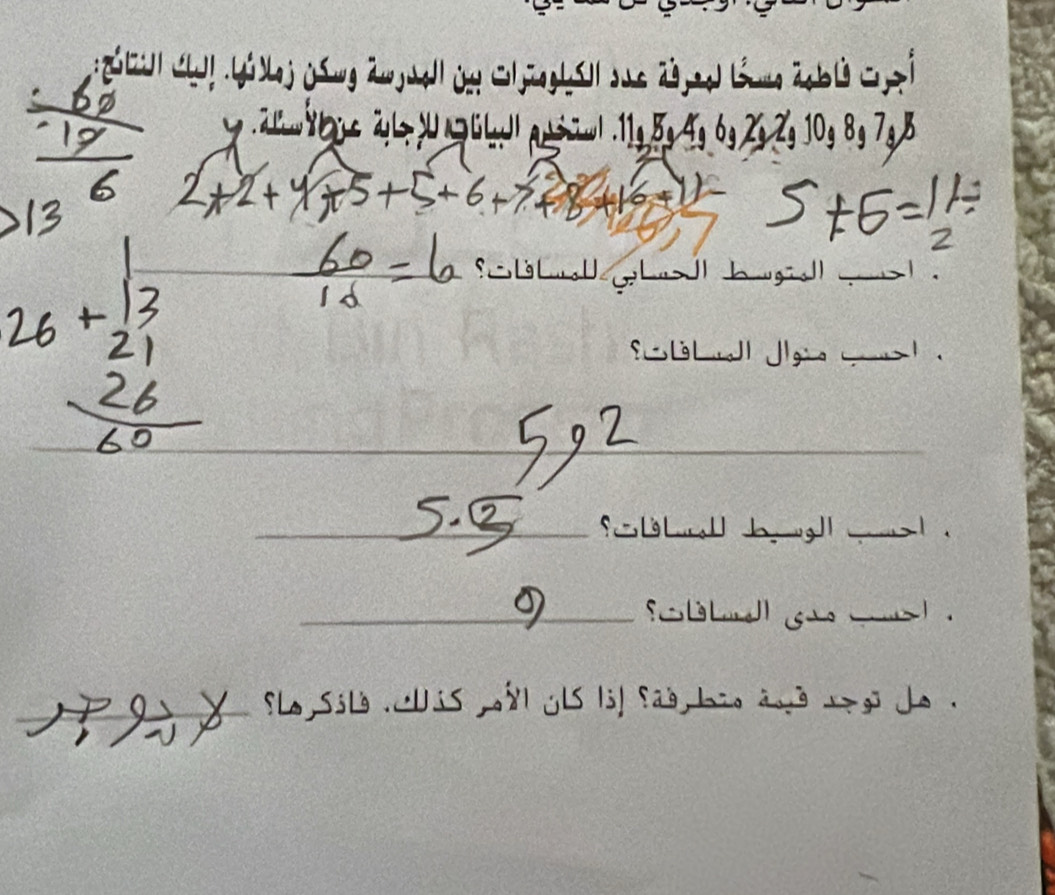 أجرت فاطمة مسحًا لمعرفة عدد الكيلومترات بين المدرسة وسكن زملائها. إليك النتائج:
5 و 7 و 8 و 10 و 2 و 2 و 6 و 4 و 5 و 11. استخدم البيانات للإجابة عن الأسئلة.
60
10
6
2+2+4+5+5+6+7+8+10+11
5+6=11÷2
13
. احسب المتوسط الحسابي للمسافات؟ 60/10 = 6
1
13
26 + 21
26
60
. احسب منوال المسافات؟
5 و 2
. احسب الوسيط للمسافات؟ 5.5
. احسب مدى المسافات؟ 9
. هل توجد قيمة متطرفة؟ إذا كان الأمر كذلك. فاذكرها؟ لا يوجد